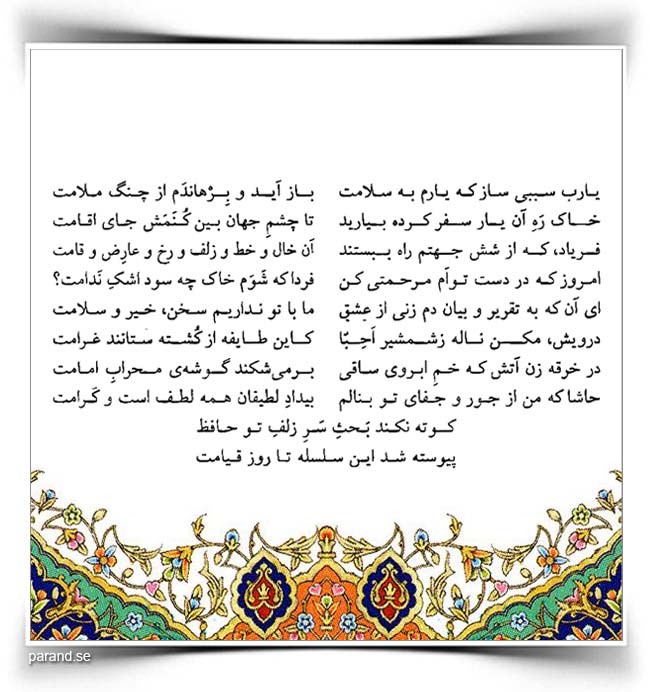 یارب سببی ساز که یارم به سلامت باز آید و بِرْهاندَم از چنگ ملامت
خاک رَهِ آن یار سفر کرده بیارید تا چشمِ جهان بین کُنَمَش جای اقامت
فریاد، که از شش جهتم راه ببستند آن خال و خط و زلف و رخ و عارِض و قامت
امروز که در دست توأم مرحمتی کن فردا که شَوَم خاک چه سود اشکِ نَدامت؟
ای آن که به تقریر و بیان دم زنی از عِشق ما با تو نداریم سخن، خیر و سلامت
درویش، مکن ناله زشمشیر اَحِبّا کاین طایفه از کُشته سَتانند غرامت
در خرقه زن آتش که خمِ ابروی ساقی برمی‌شکند گوشه‌ی محرابِ امامت
حاشا که من از جور و جفای تو بنالم بیدادِ لطیفان همه لطف است و کَرامت
کوته نکند بَحثِ سَرِ زلفِ تو حافظ
پیوسته شد این سلسله تا روز قیامت
parand.se